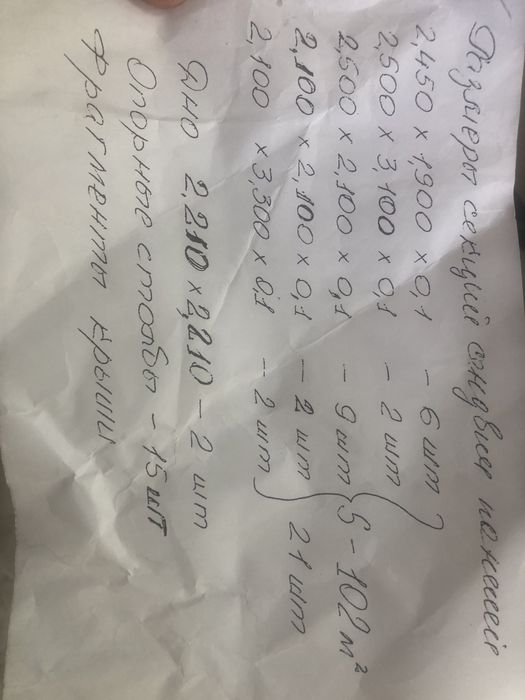 Размеры секций сэндвич панелей
2,450 x 1,900 x 0,1 - 6 шт
2,500 x 3,100 x 0,1 - 2 шт
2,500 x 2,100 x 0,1 - 9 шт S - 102 м²
2,100 x 2,100 x 0,1 - 2 шт 21 шт
2,100 x 3,300 x 0,1 - 2 шт
Дно 2,210 x 2,210 - 2 шт
Опорные столбы - 15 шт
Фрагменты крыши